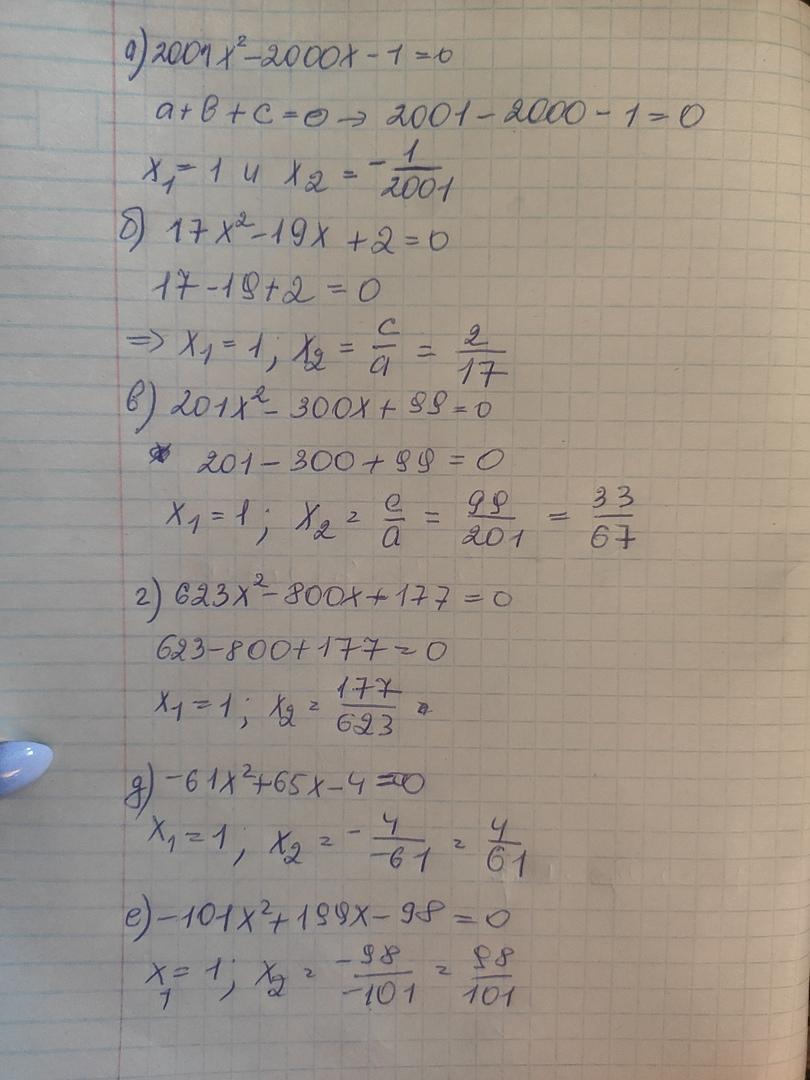 а) 2001x² - 2000x - 1 = 0
a + b + c = 0 → 2001 - 2000 - 1 = 0
x₁ = 1 и x₂ = -1/2001
б) 17x² - 19x + 2 = 0
17 - 19 + 2 = 0
⇒ x₁ = 1; x₂ = c/a = 2/17
в) 201x² - 300x + 99 = 0
201 - 300 + 99 = 0
x₁ = 1; x₂ = c/a = 99/201 = 33/67
г) 623x² - 800x + 177 = 0
623 - 800 + 177 = 0
x₁ = 1; x₂ = 177/623
д) -61x² + 65x - 4 = 0
x₁ = 1; x₂ = -4/-61 = 4/61
е) -101x² + 199x - 98 = 0
x₁ = 1; x₂ = -98/-101 = 98/101